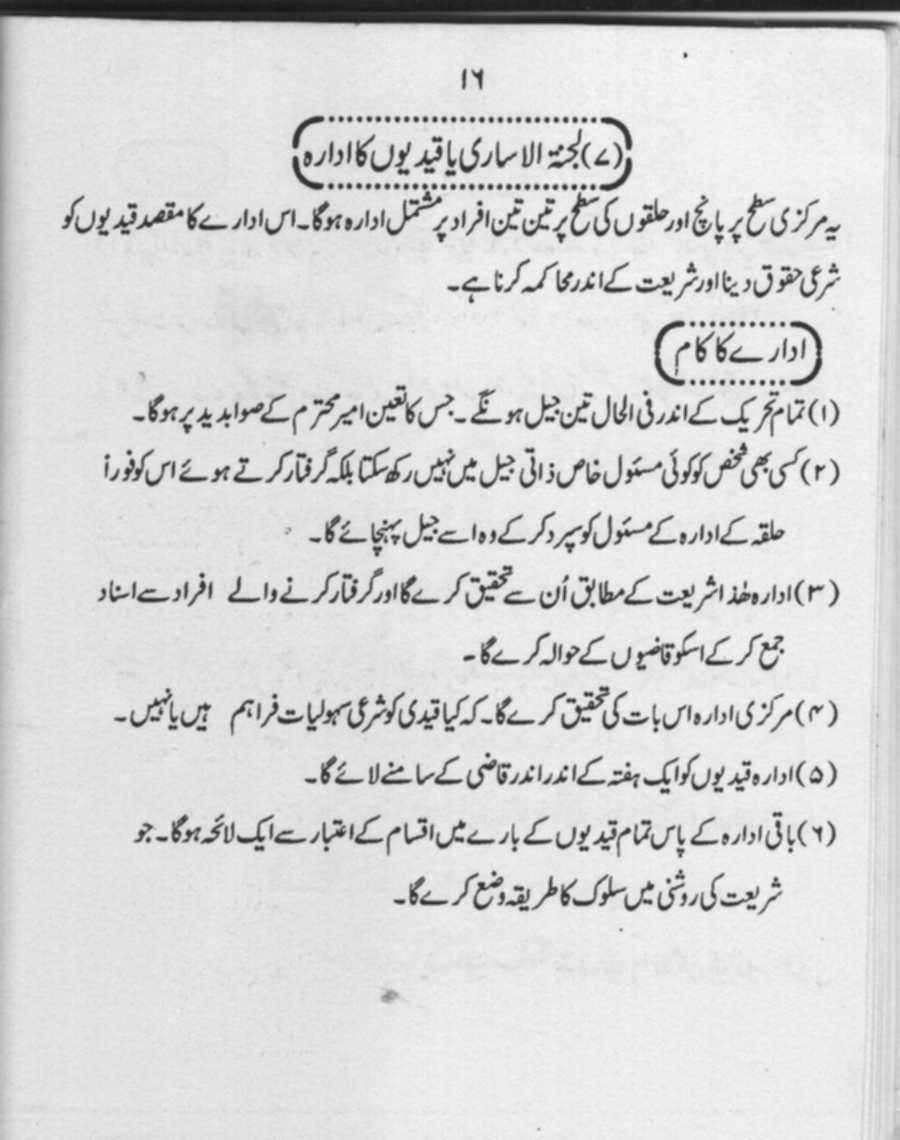 ۱۶
(۷) لجنۃ الاساری یا قیدیوں کا ادارہ
یہ مرکزی سطح پر پانچ اور حلقوں کی سطح پر تین تین افراد پر مشتمل ادارہ ہوگا۔ اس ادارے کا مقصد قیدیوں کو
شرعی حقوق دینا اور شریعت کے اندر محاکمہ کرنا ہے۔
ادارے کا کام
(۱) تمام تحریک کے اندر فی الحال تین جیل ہونگے۔ جس کا تعین امیر محترم کے صوابدید پر ہوگا۔
(۲) کسی بھی شخص کو کوئی مسئول خاص ذاتی جیل میں نہیں رکھ سکتا بلکہ گرفتار کرتے ہوئے اس کو فوراً
حلقہ کے ادارہ کے مسئول کو سپرد کر کے وہ اسے جیل پہنچائے گا۔
(۳) ادارہ ھٰذا شریعت کے مطابق اُن سے تحقیق کرے گا اور گرفتار کرنے والے افراد سے اسناد
جمع کر کے اسکو قاضیوں کے حوالہ کرے گا۔
(۴) مرکزی ادارہ اس بات کی تحقیق کرے گا۔ کہ کیا قیدی کو شرعی سہولیات فراہم ہیں یا نہیں۔
(۵) ادارہ قیدیوں کو ایک ہفتہ کے اندر اندر قاضی کے سامنے لائے گا۔
(۶) باقی ادارہ کے پاس تمام قیدیوں کے بارے میں اقسام کے اعتبار سے ایک لائحہ ہوگا۔ جو
شریعت کی روشنی میں سلوک کا طریقہ وضع کرے گا۔